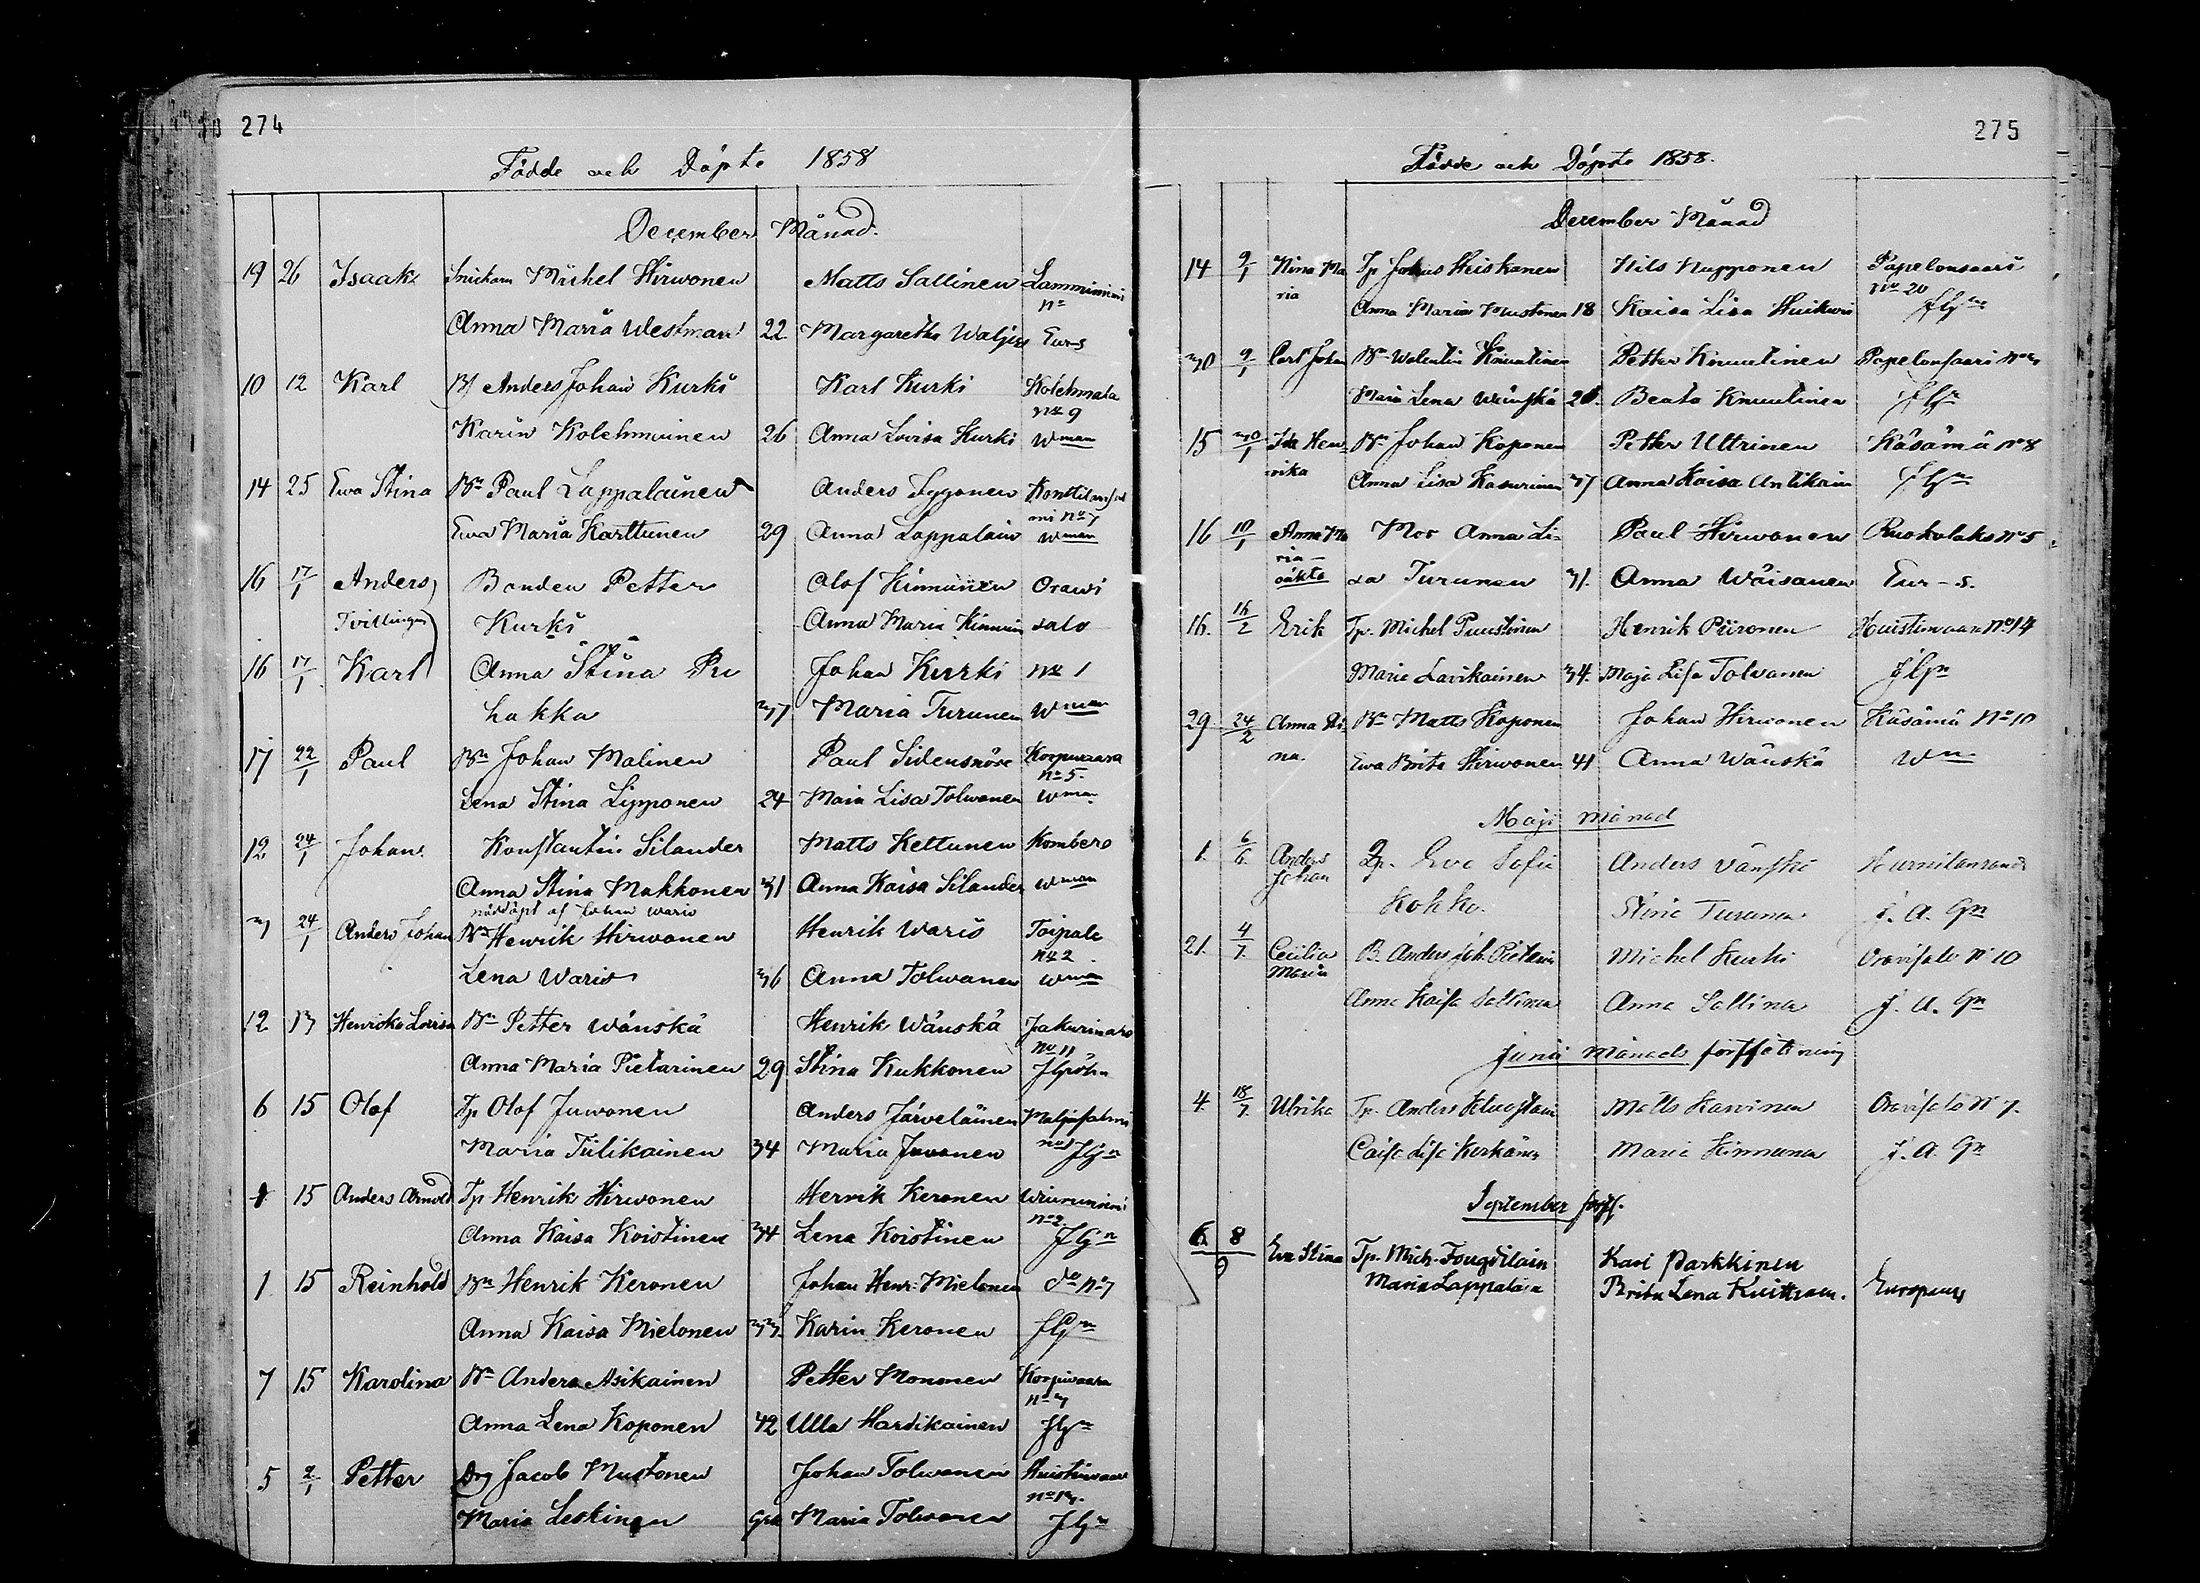 274
Födde och Döpte 1858
December Månad.
19 26 Isaak Snickarn Michel Hirwonen Matts Sallinen Lamminiemi
No
Anna Maria Westman 22 Margaretha Eur-s
10 12 Karl Anders Johan Kurki Karl Kurki Kolehmala
No 9
Karin Kolehmainen 26 Anna Lovisa Kurki Wman
14 25 Ewa Stina Bn Paul Lappalainen Anders Kontilansal
mi No 7
Ewa Maria Karttunen 29 Anna Lappalain Wman
16 17/1 Anders Bonden Petter Olof Kinnunen Orawi
Tvillingar Kurki Anna Maria Kinnunen salo
16 17/1 Karl Anna Stina Pu Johan Kurki No 1
hakka 37 Maria Turunen Wman
17 22/1 Paul Bn Johan Malinen Paul Sidensnöre Korpiwaara
No 5
Lena Stina Lipponen 24 Maia Lisa Tolwanen Wman
12 24/1 Johan Konstantin Silander Matts Kettunen Kombero
Anna Stina Makkonen 31 Anna Kaisa Silander Wman
nöddöpt af Johan Waris
3 24/1 Anders Johan Bn Henrik Hirwonen Henrik Waris Toipale
No 2
Lena Waris 36 Anna Tolwanen Wman
12 13 Henrika Lovisa Bn Petter Wänskä Henrik Wänskä Jakurinaro
No 11
Anna Maria Pietarinen 29 Stina Kukkonen
6 15 Olof Tp Olof Juwonen Anders Järveläinen
Maria Tiilikainen 34 Maria Juvonen JGn
1 15 Anders Arnold Tp Henrik Hirwonen Henrik Keronen
No 2
Anna Kaisa Koistinen 34 Lena Koistinen JGn
1 15 Reinhold Bn Henrik Keronen Johan Henr. Mielonen do No 7
Anna Kaisa Mielonen 33 Karin Keronen JGn
7 15 Karolina Bn Anders Asikainen Petter Mononen Korpiwaara
No 3
Anna Lena Koponen 42 Ulla Hardikainen JGn
5 2/1 Petter Drg Jacob Mustonen Johan Tolwanen Huistinwaara
No 13.
Maria Leskinen Maria Tolwanen JGn
275
Födde och Döpte 1858.
December Månad
14 9/1 Nina Ma Tp Heiskanen Nils Nupponen Papelonsaari
No 20
ria Anna Maria Mustonen 18 Kaisa Lisa Huikuri JGn
30 9/1 Carl Johan Bn Walentin Knuutinen Petter Knuutinen Papelonsaari No
Maria Lena Wänskä 20. Beata Knuutinen JGn
15 30/1 Ida Hen Bn Johan Koponen Petter Ultrinen Käsämä No 8
rika Anna Lisa Kasurinen 37 Anna Kaisa Antikain JGn
16 10/1 Anna Ma Mor Anna Li- Paul Hirwonen Ruokolaks No 5
ria
oäkta sa Turunen 31. Anna Wäisänen Eur-s.
16. 16/2 Erik Tp. Michel Puustinen Henrik Piironen Huistinwaara No 14
Maria Lavikainen 34. Maja Lisa Tolvanen JGn
29 24/2 Anna Sti Bn Matts Koponen Johan Hirwonen Käsämä No 10
na. Ewa Brita Hirwonen 41 Anna Wänskä Wn
Maji månad
1. 6/6. Anders Tp. Eva Sofia Anders Vänskä
Johan Kokko. Stina Turunen J. A. Gn
21. 4/7. Cecilia B. Anders Joh. Michel Kurki Oravisalo No 10
Maria Anna Kaisa Sallinen Anna Sallinen J. A. Gn
Junii månads fortsättning
4. 18/7. Ulrika Tp. Anders Matts Karvinen Oravisalo No 7.
Caisa Lisa Maria Kinnunen J. A. Gn
September forts.
6. 8/9 Eva Stina Tp. Mich. Karl Parkkinen
Maria Lappalain Brita Lena Europæus